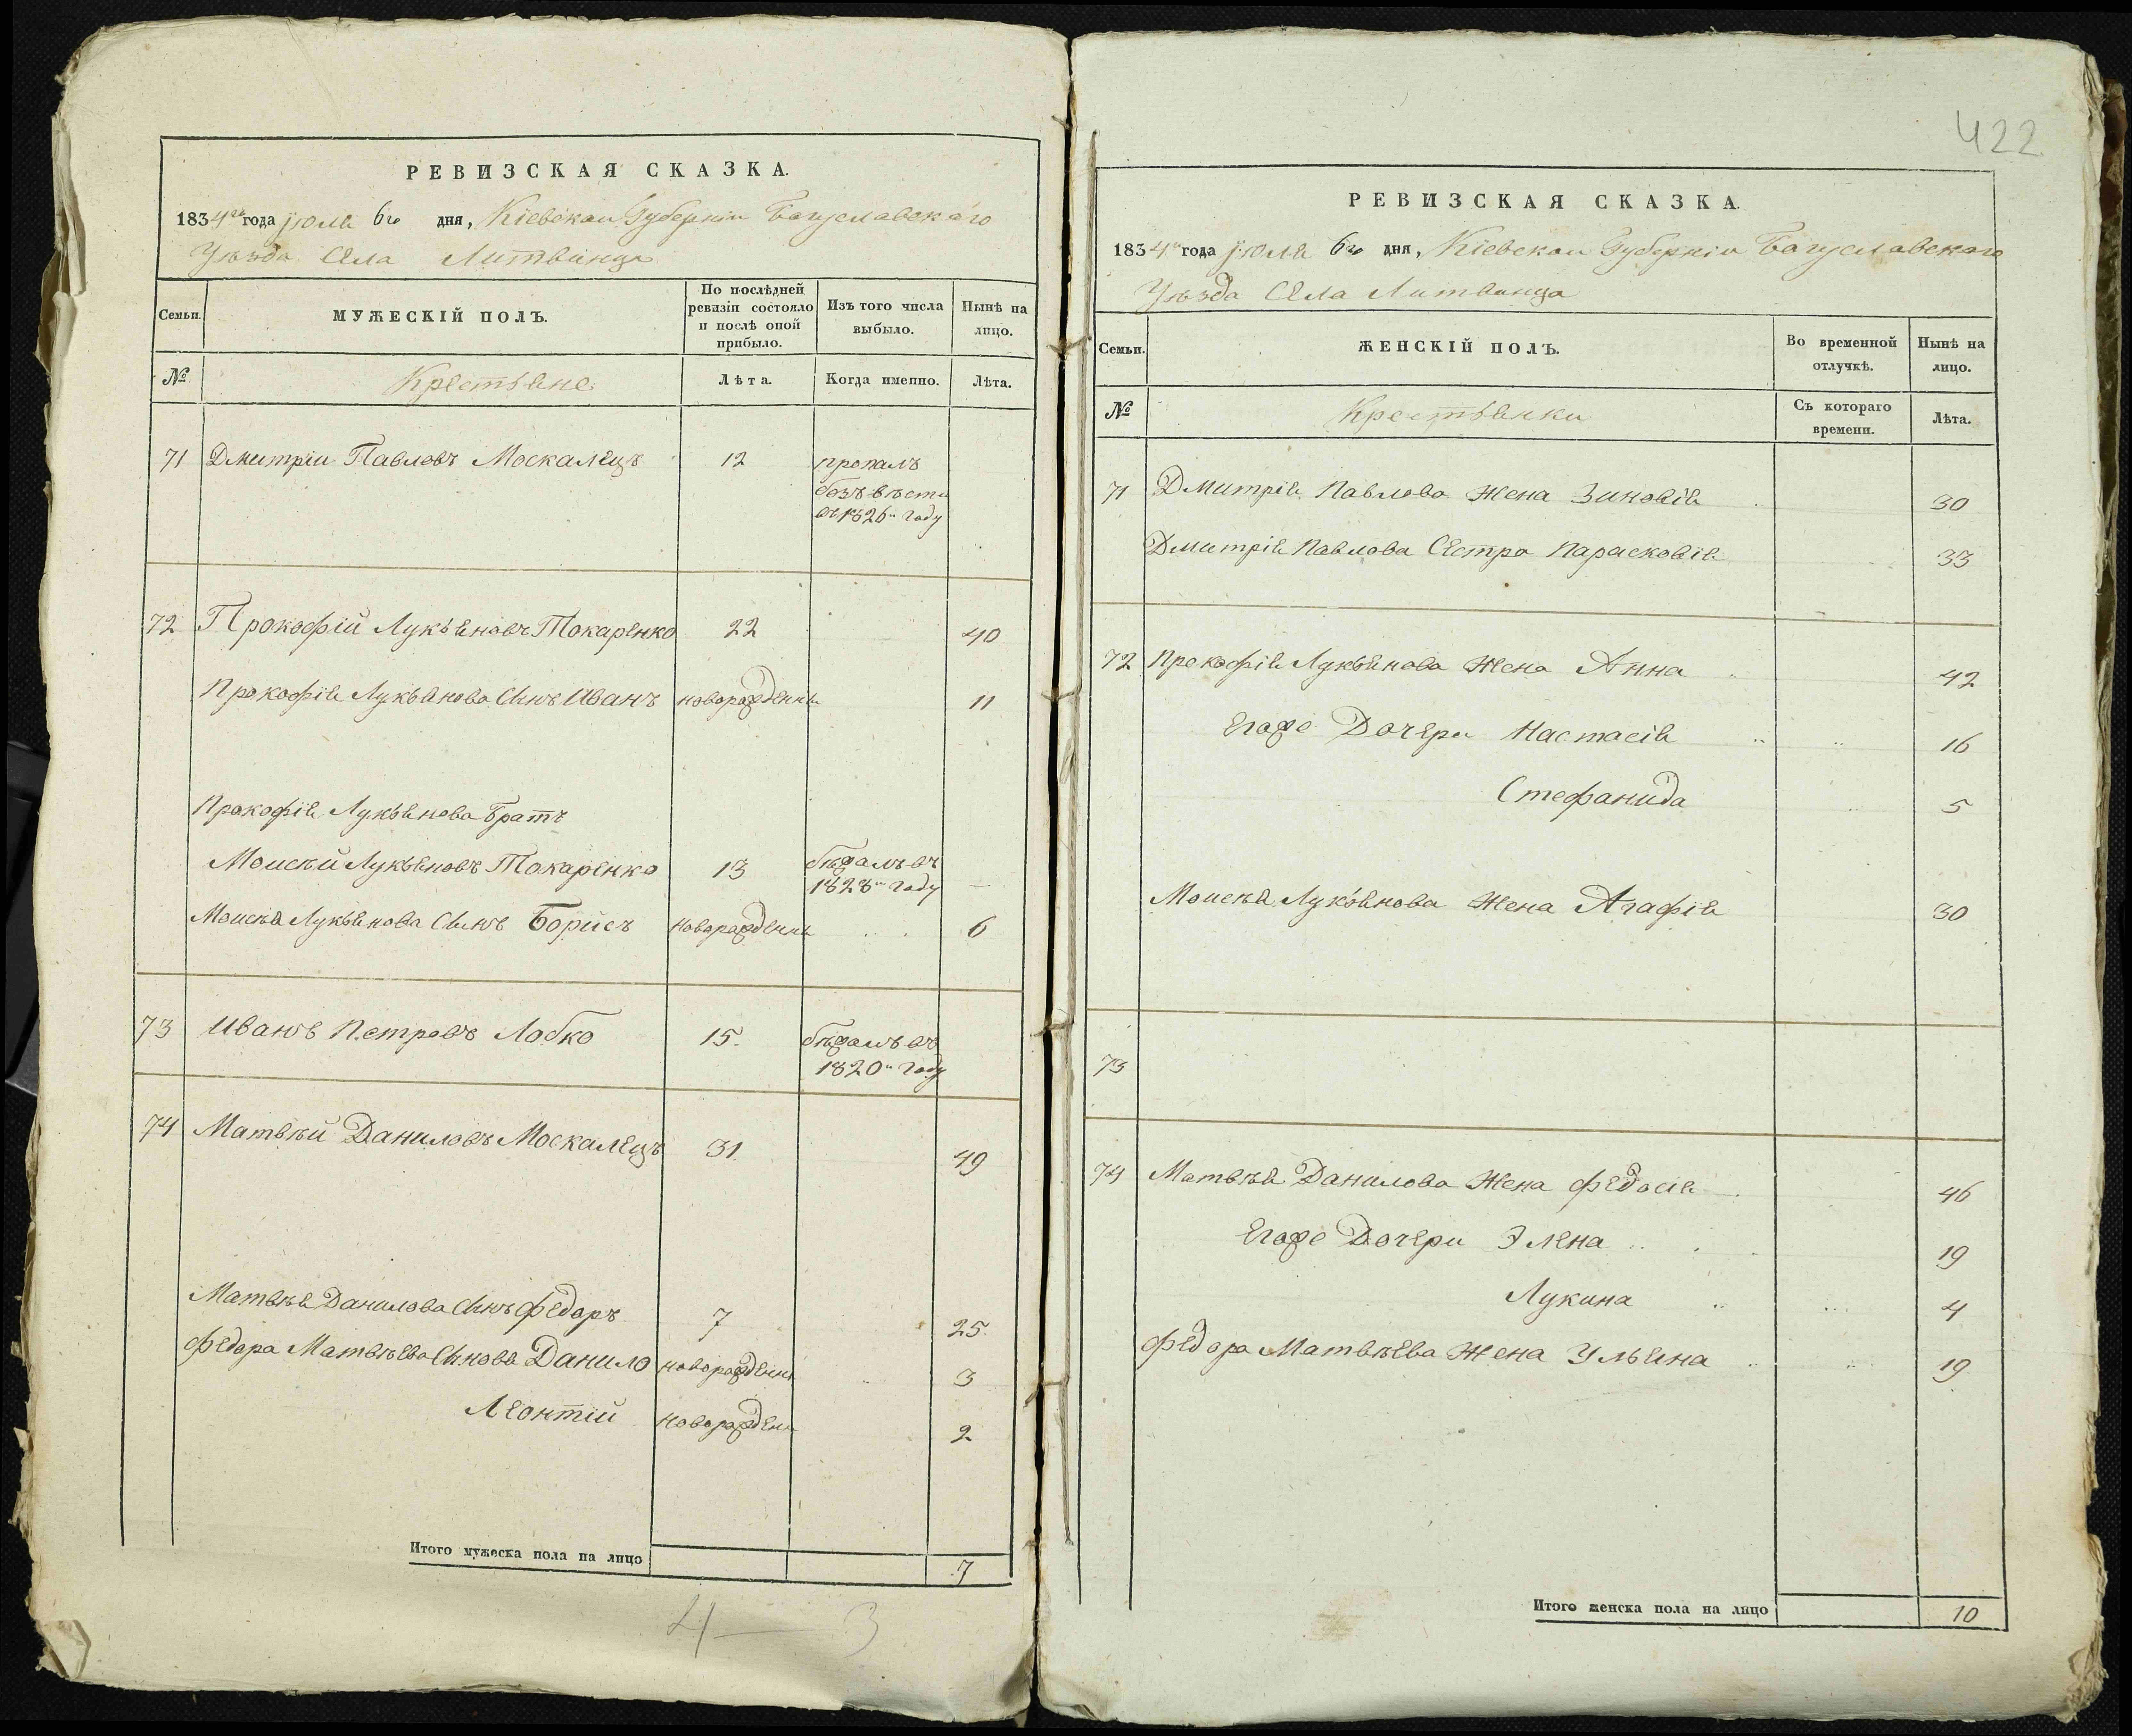 РЕВИЗСКАЯ СКАЗКА.
1834го года июля 6го дня, Кіевской Губерніи Богуславскаго
Уѣзда Села Литвинца
Семьи.
МУЖЕСКІЙ ПОЛЪ.
По послѣдней ревизіи состояло и послѣ оной прибыло.
Изъ того числа выбыло.
Нынѣ на лицо.
№ Крестьяне Лѣта. Когда именно. Лѣта.
71 Дмитрій Павловъ Москалецъ 12 пропалъ
безъ вѣсти
въ 1826м году
72 Прокофій Лукьяновъ Токаренко 22 40
Прокофія Лукьянова Сынъ Иванъ новорожденны 11
Прокофія Лукьянова Братъ
Моисѣй Лукьяновъ Токаренко 13 бѣжалъ въ
1828м году
Моисѣя Лукьянова Сынъ Борисъ новорожденны 6
73 Иванъ Петровъ Лобко 15. бѣжалъ въ
1820м году
74 Матвѣй Даниловъ Москалецъ 31. 49
Матвѣя Данилова Сынъ Федоръ 7 25.
Федора Матвѣева Сыновя Данило новорожденны 3
Леонтій новорожден 2
Итого мужеска пола на лицо 7
4 — 3
422
РЕВИЗСКАЯ СКАЗКА.
1834го года июля 6го дня, Кіевской Губерніи Богуславскаго
Уѣзда Села Литвинца
Семьи.
ЖЕНСКІЙ ПОЛЪ.
Во временной отлучкѣ.
Нынѣ на лицо.
№ Крестьянки Съ котораго времени. Лѣта.
71 Дмитрія Павлова Жена Зиновія 30
Дмитрія Павлова Сестра Парасковія 33
72 Прокофія Лукьянова Жена Анна 42
Егоже Дочери Настасія 16
Стефанида 5
Моисѣя Лукьянова Жена Агафія 30
73
74 Матвѣя Данилова Жена Федосія 46
Егоже Дочери Элена 19
Лукина 4
Федора Матвѣева Жена Ульяна 19
Итого женска пола на лицо 10